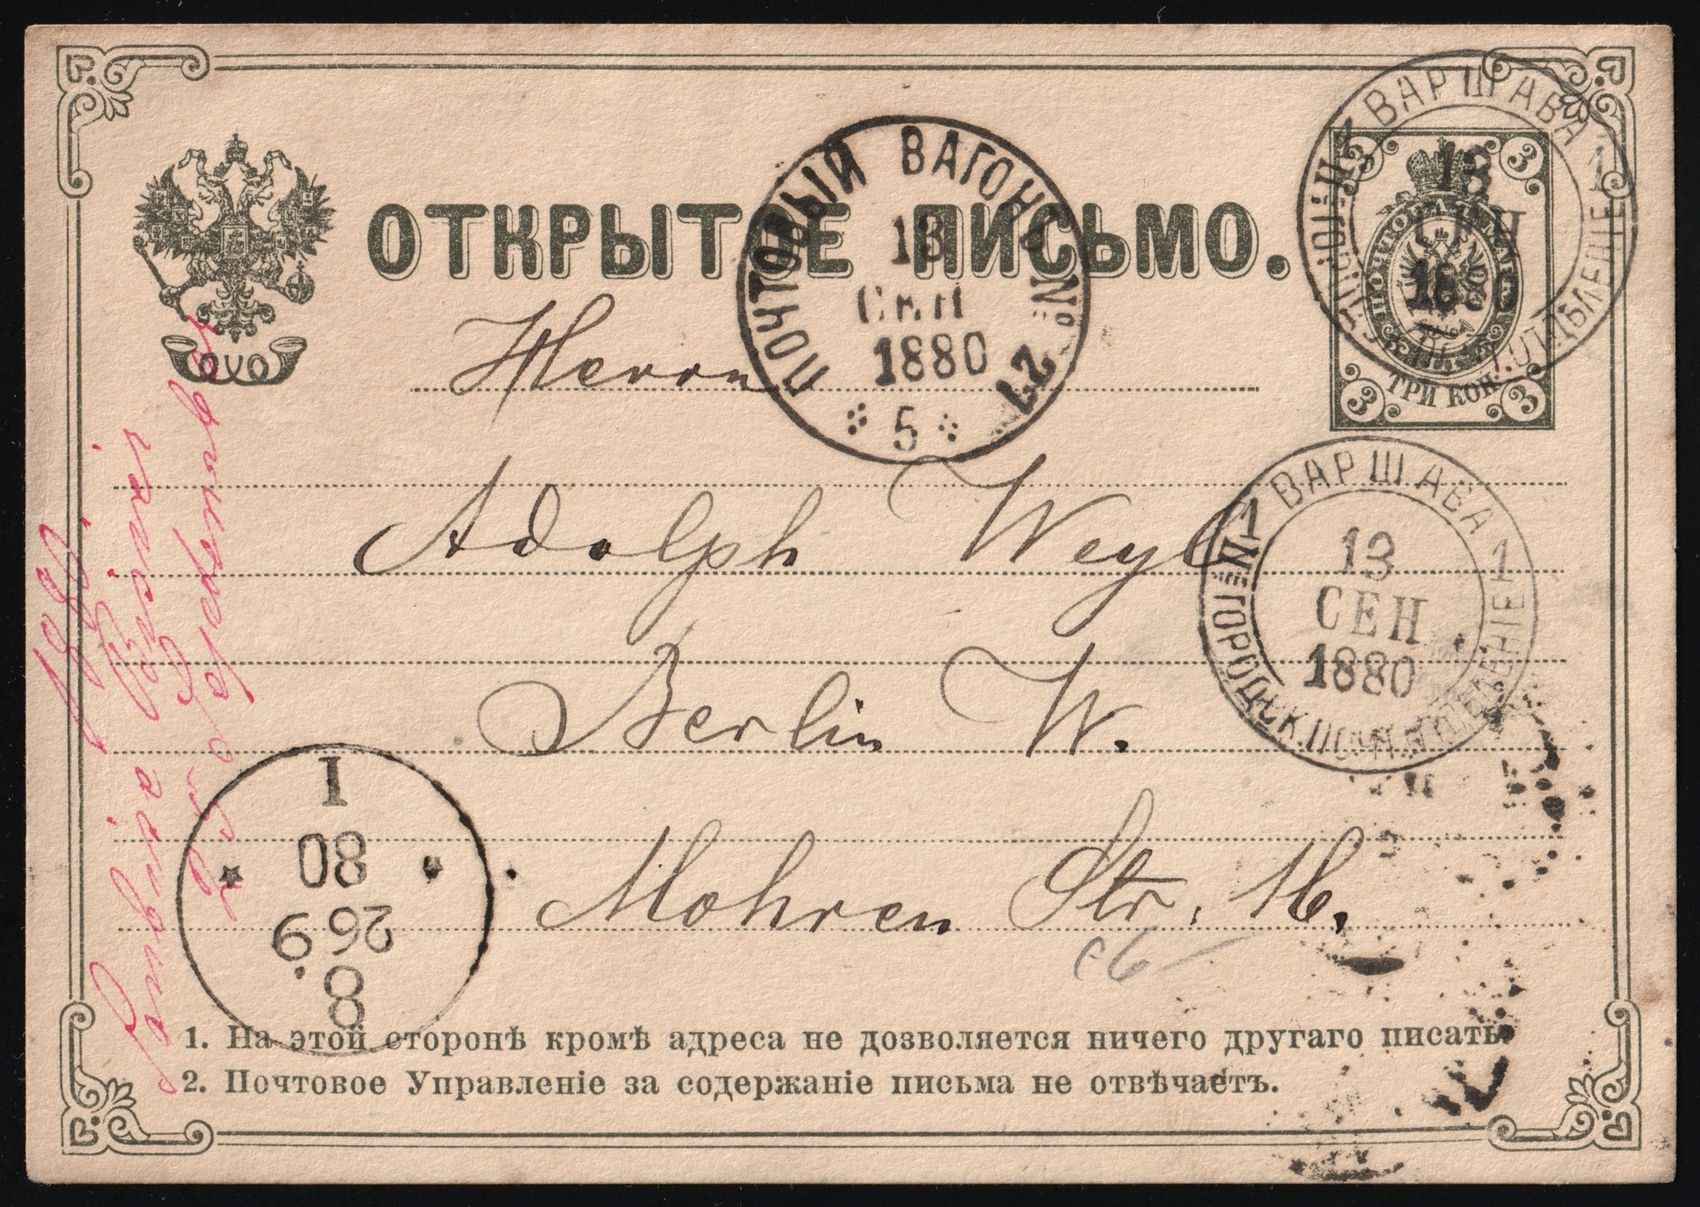 ОТКРЫТОЕ ПИСЬМО.
ПОЧТОВЫЙ ВАГОНЪ № 27
13
СЕН
1880
5
ВАРШАВА 1
13
1880
3 3
ТРИ КОП.
3 3
Herrn
Adolph Weyl
Berlin W.
Mohren Str. 16.
ВАРШАВА 1
II ГОРОДСК. ПОЧТ. ОТДѢЛЕНІЕ 1
13
СЕН
1880
I
80
26 9.
8
1880
1. На этой сторонѣ кромѣ адреса не дозволяется ничего другаго писать.
2. Почтовое Управленіе за содержаніе письма не отвѣчаетъ.